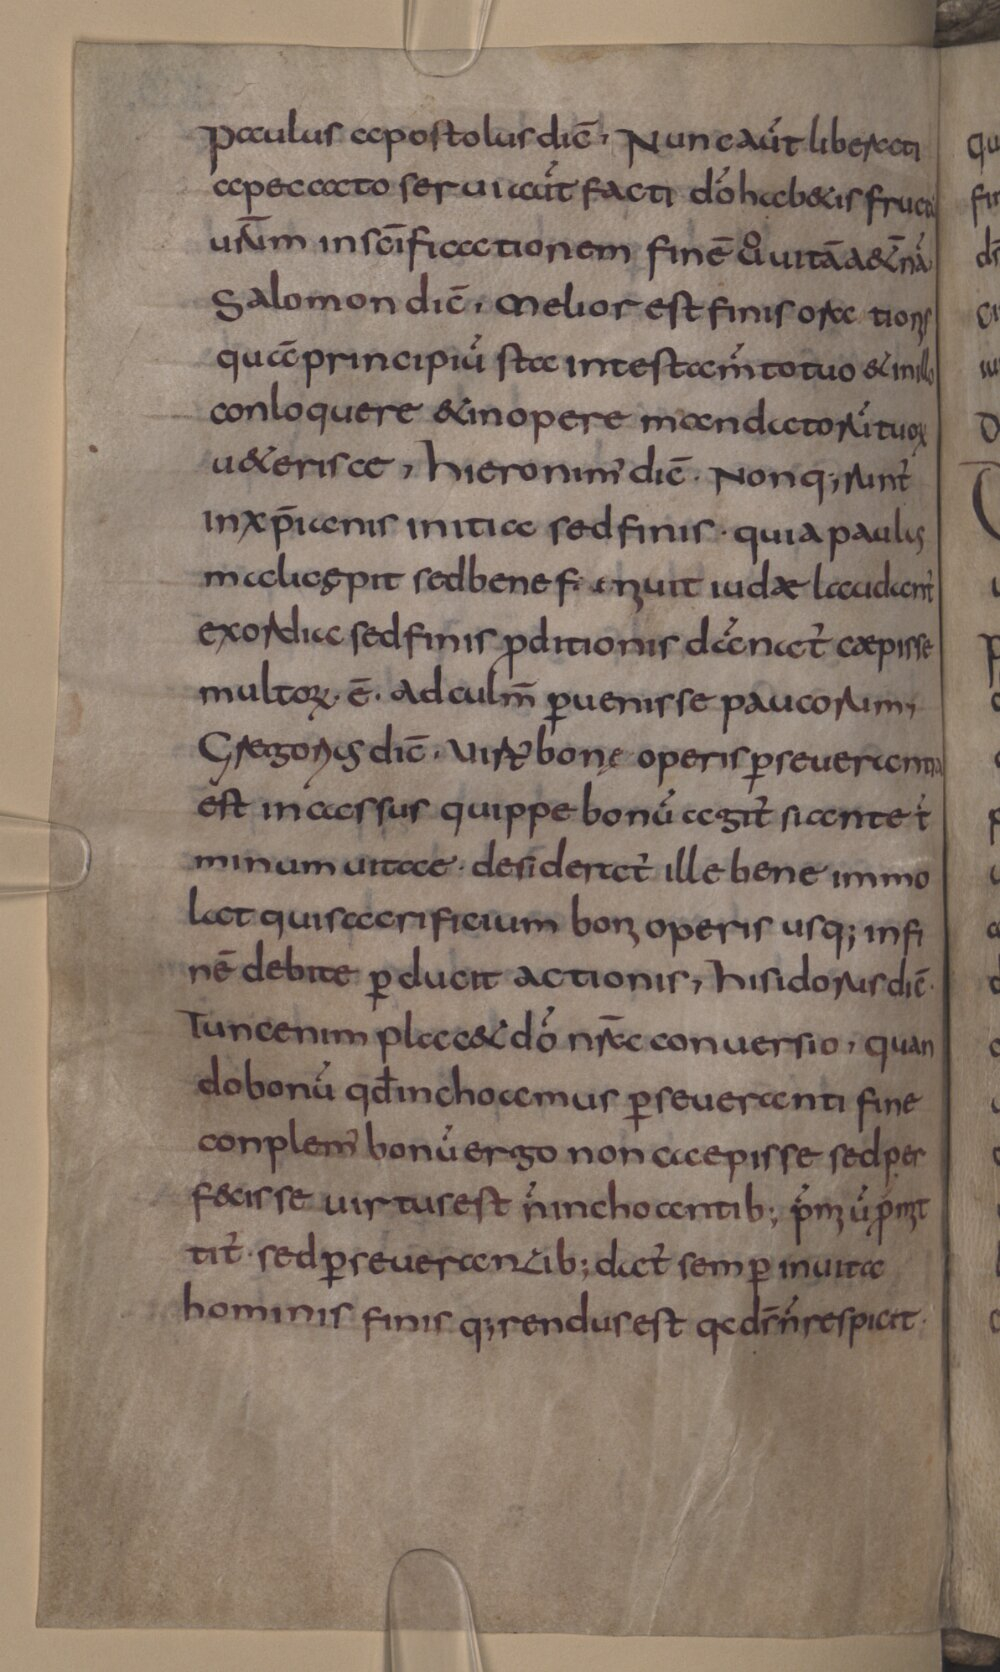 Paulus apostolus dic̄. Nunc aut̄ liberati
a peccato serui aut̄ facti dō hab&is fructū
ur̄m in sc̄ificationem finē ū uitā a&nā
Salomon dic̄. Melior est finis orationis
quā principiū sta in testam̄to tuo & in illo
conloquere & in opere mandatorū tuoꝝ
u&erisce, hieronim' dic̄. Non q;runt̄
in xp̄ianis initia sed finis. quia paulus
male cępit sed bene finiuit iudæ laudant̄
exordia sed finis ꝑditionis dānat̄ cæpisse
multoꝝ. ē. ad culm̄ ꝑuenisse paucorum,
Gregorius dic̄. Uirt' boni operis ꝑseuerantia
est incassus quippe bonū agit̄ si ante t̄
minum uitae. desiderat̄ ille bene immo
lat qui sacrificium boni operis usq; in fi
nē debite ꝑducit actionis, hisidorus dic̄.
Tunc enim plac& dō nr̄a conuersio, quan
do bonū qđ inchoamus ꝑseueranti fine
conplem' bonū ergo non cæpisse sed per
fecisse uirtus est n̄ inchoantib; p̄miū p̄mit
tit̄. sed ꝑseuerantib; dat̄ semꝑ in uita
hominis finis q;rendus est q̄a dn̄s n̄ respicit.